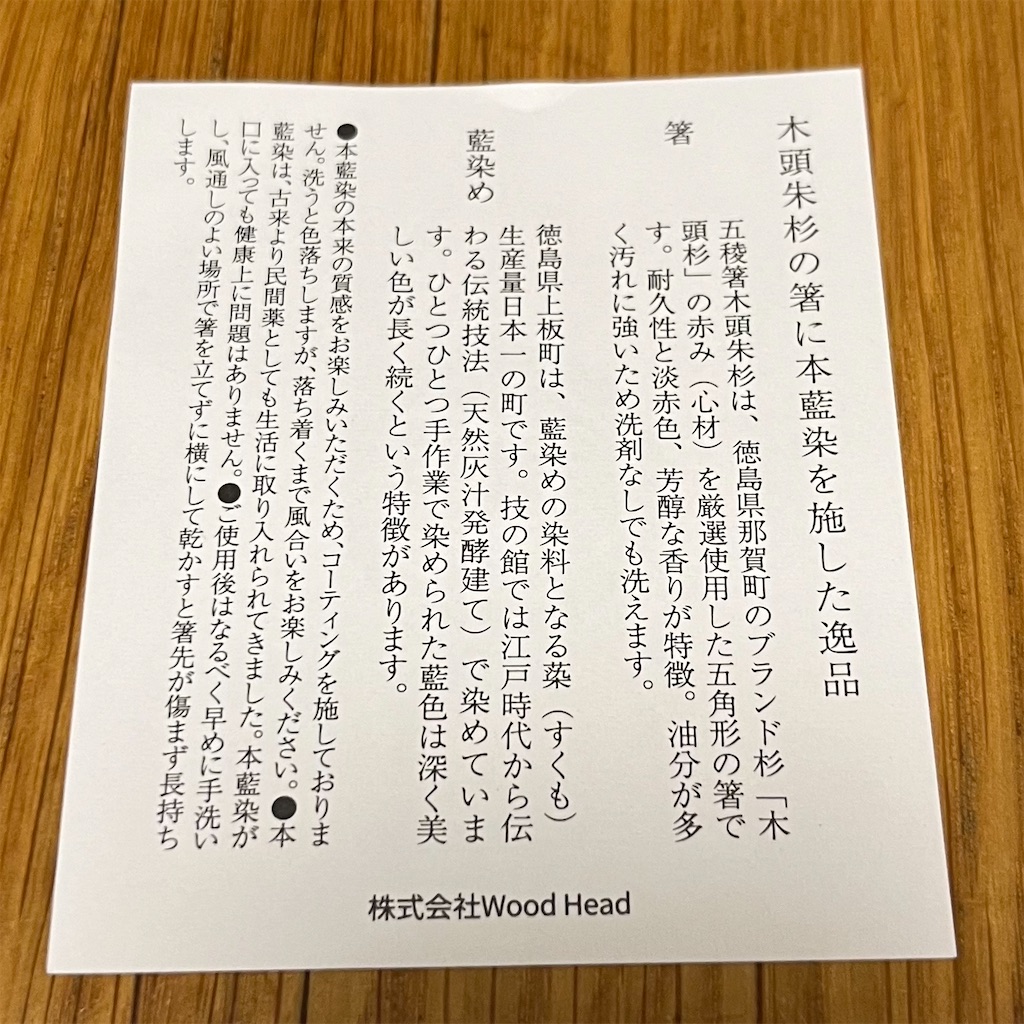 木頭朱杉の箸に本藍染を施した逸品
箸
五稜箸木頭朱杉は、徳島県那賀町のブランド杉「木
頭杉」の赤み（心材）を厳選使用した五角形の箸で
す。耐久性と淡赤色、芳醇な香りが特徴。油分が多
く汚れに強いため洗剤なしでも洗えます。
藍染め
徳島県上板町は、藍染めの染料となる蒅（すくも）
生産量日本一の町です。技の館では江戸時代から伝
わる伝統技法（天然灰汁発酵建て）で染めていま
す。ひとつひとつ手作業で染められた藍色は深く美
しい色が長く続くという特徴があります。
●本藍染の本来の質感をお楽しみいただくため、コーティングを施しておりま
せん。洗うと色落ちしますが、落ち着くまで風合いをお楽しみください。●本
藍染は、古来より民間薬としても生活に取り入れられてきました。本藍染が
口に入っても健康上に問題はありません。●ご使用後はなるべく早めに手洗い
し、風通しのよい場所で箸を立てずに横にして乾かすと箸先が傷まず長持ち
します。
株式会社Wood Head